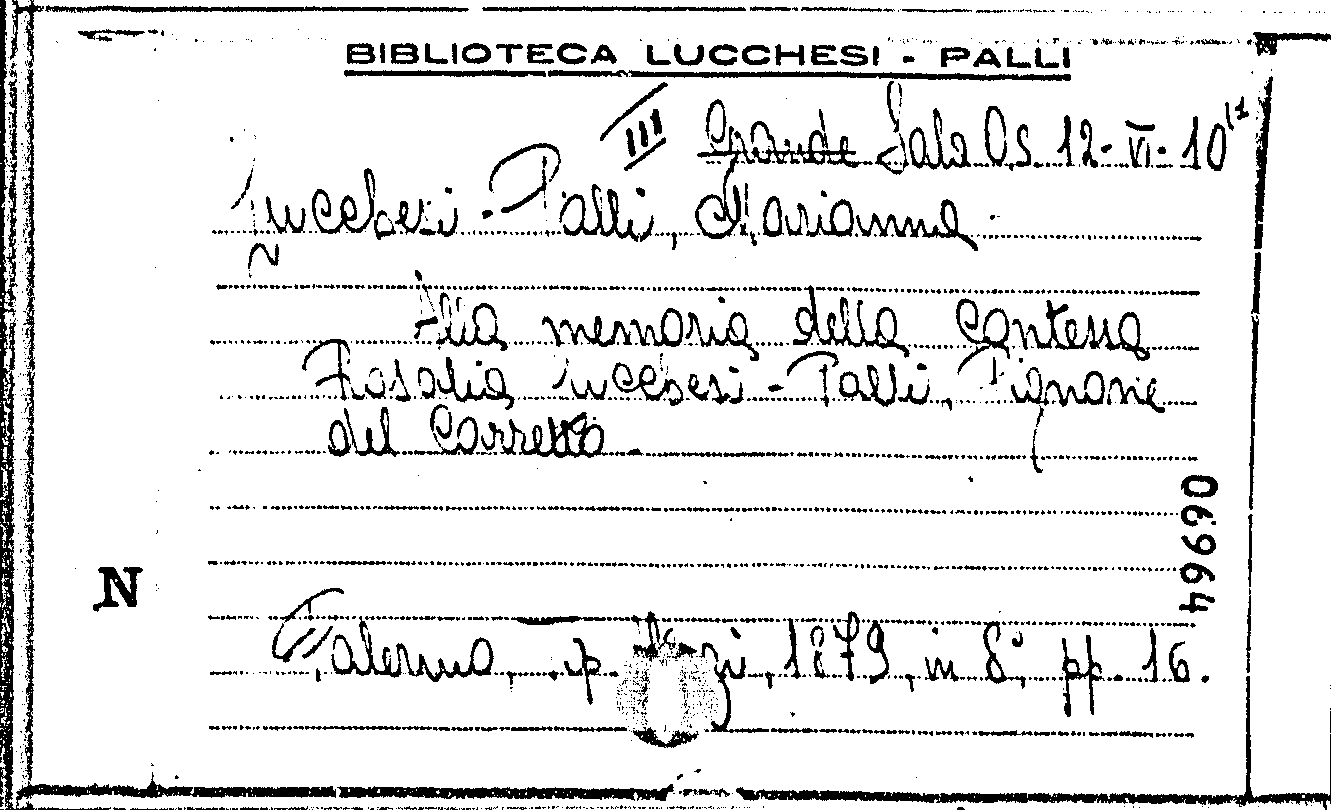 BIBLIOTECA LUCCHESI - PALLI
III Grande Sala Os. 12-VI-10 11
Lucchesi-Palli, Marianna
Alla memoria della Contessa
Rosalia Lucchesi-Palli, Pignone
del Carretto.
06964
N
Palermo, tip. 1879, in 8°, pp. 16.